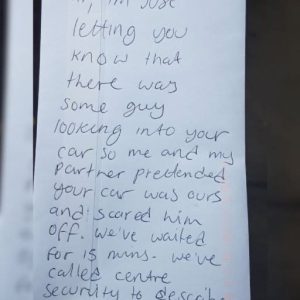 I'm just
letting you
know that
there was
some guy
looking into your
car so me and my
partner pretended
your car was ours
and scared him
off. We've waited
for 15 mins. we've
called centre
security to describe